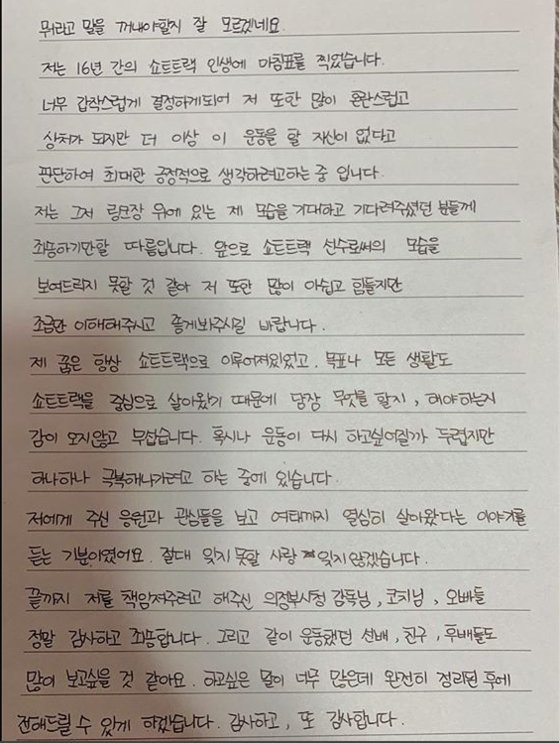 뭐라고 말을 꺼내야할지 잘 모르겠네요.
저는 16년 간의 쇼트트랙 인생에 마침표를 찍었습니다.
너무 갑작스럽게 결정하게되어 저 또한 많이 혼란스럽고
상처가 되지만 더 이상 이 운동을 할 자신이 없다고
판단하여 최대한 긍정적으로 생각하려고하는 중 입니다.
저는 그저 링크장 위에 있는 제 모습을 기대하고 기다려주셨던 분들께
죄송하기만할 따름입니다. 앞으로 쇼트트랙 선수로써의 모습을
보여드리지 못할 것 같아 저 또한 많이 아쉽고 힘들지만
조금만 이해해주시고 좋게봐주시길 바랍니다.
제 꿈은 항상 쇼트트랙으로 이루어져있었고. 목표나 모든 생활도
쇼트트랙을 중심으로 살아왔기 때문에 당장 무엇을 할지, 해야하는지
감이 오지않고 무섭습니다. 혹시나 운동이 다시 하고싶어질까 두렵지만
하나하나 극복해나가려고 하는 중에 있습니다.
저에게 주신 응원과 관심들을 보고 여태까지 열심히 살아왔다는 이야기를
듣는 기분이였어요. 절대 잊지 못할 사랑 잊지않겠습니다.
끝까지 저를 책임져주려고 해주신 의정부시청 감독님, 코치님, 오빠들
정말 감사하고 죄송합니다. 그리고 같이 운동했던 선배, 친구, 후배들도
많이 보고싶을 것 같아요. 하고싶은 말이 너무 많은데 완전히 정리된 후에
전해드릴 수 있게 하겠습니다. 감사하고, 또 감사합니다.